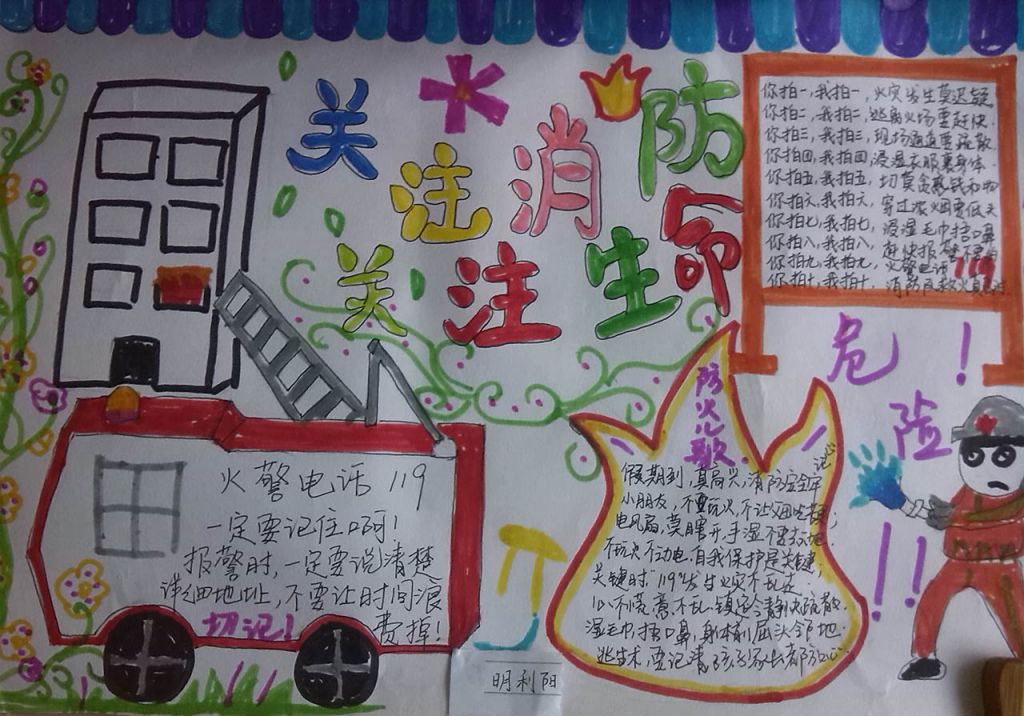 关注消防
关注生命
你拍一,我拍一,火灾发生莫迟疑
你拍二,我拍二,逃离火场要赶快.
你拍三,我拍三,现场通道要疏散.
你拍四,我拍四,浸湿衣服裹身体.
你拍五,我拍五,切莫贪恋钱和物
你拍六,我拍六,穿过浓烟要低头
你拍七,我拍七,浸湿毛巾捂口鼻
你拍八,我拍八,赶快报警不
你拍九,我拍九,火警电话119
你拍十,我拍十,消防
危险!
!!
火警电话119
一定要记住啊!
报警时,一定要说清楚
详细地址,不要让时间浪
费掉!
切记!
防火儿歌
假期到,真高兴,消防安全牢记心
小朋友,不要玩火,不让父母
电风扇,莫瞎开,手湿不要
不玩火不动电,自我保护是关键;
关键时"119"发生火灾不乱
心不慌,意不乱,镇定冷静快疏散.
湿毛巾,捂口鼻,身体前屈头
逃生术,要记清,孩子家长
明利阳